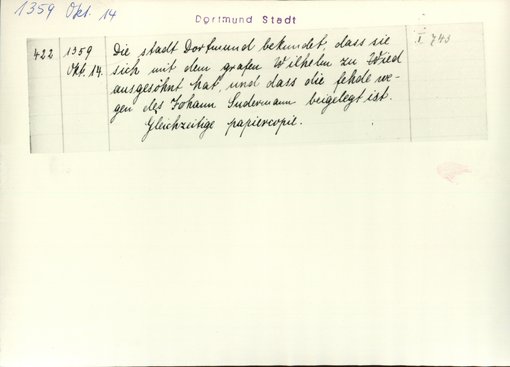 1359 Okt. 14
Dortmund Stadt
422 1359 Okt. 14. Die stadt Dortmund bekundet, dass sie I. 743
sich mit dem grafen Wilhelm zu Wied
ausgesöhnt hat, und dass die fehde we-
gen des Johann Sudermann beigelegt ist.
Gleichzeitige papiercopie.